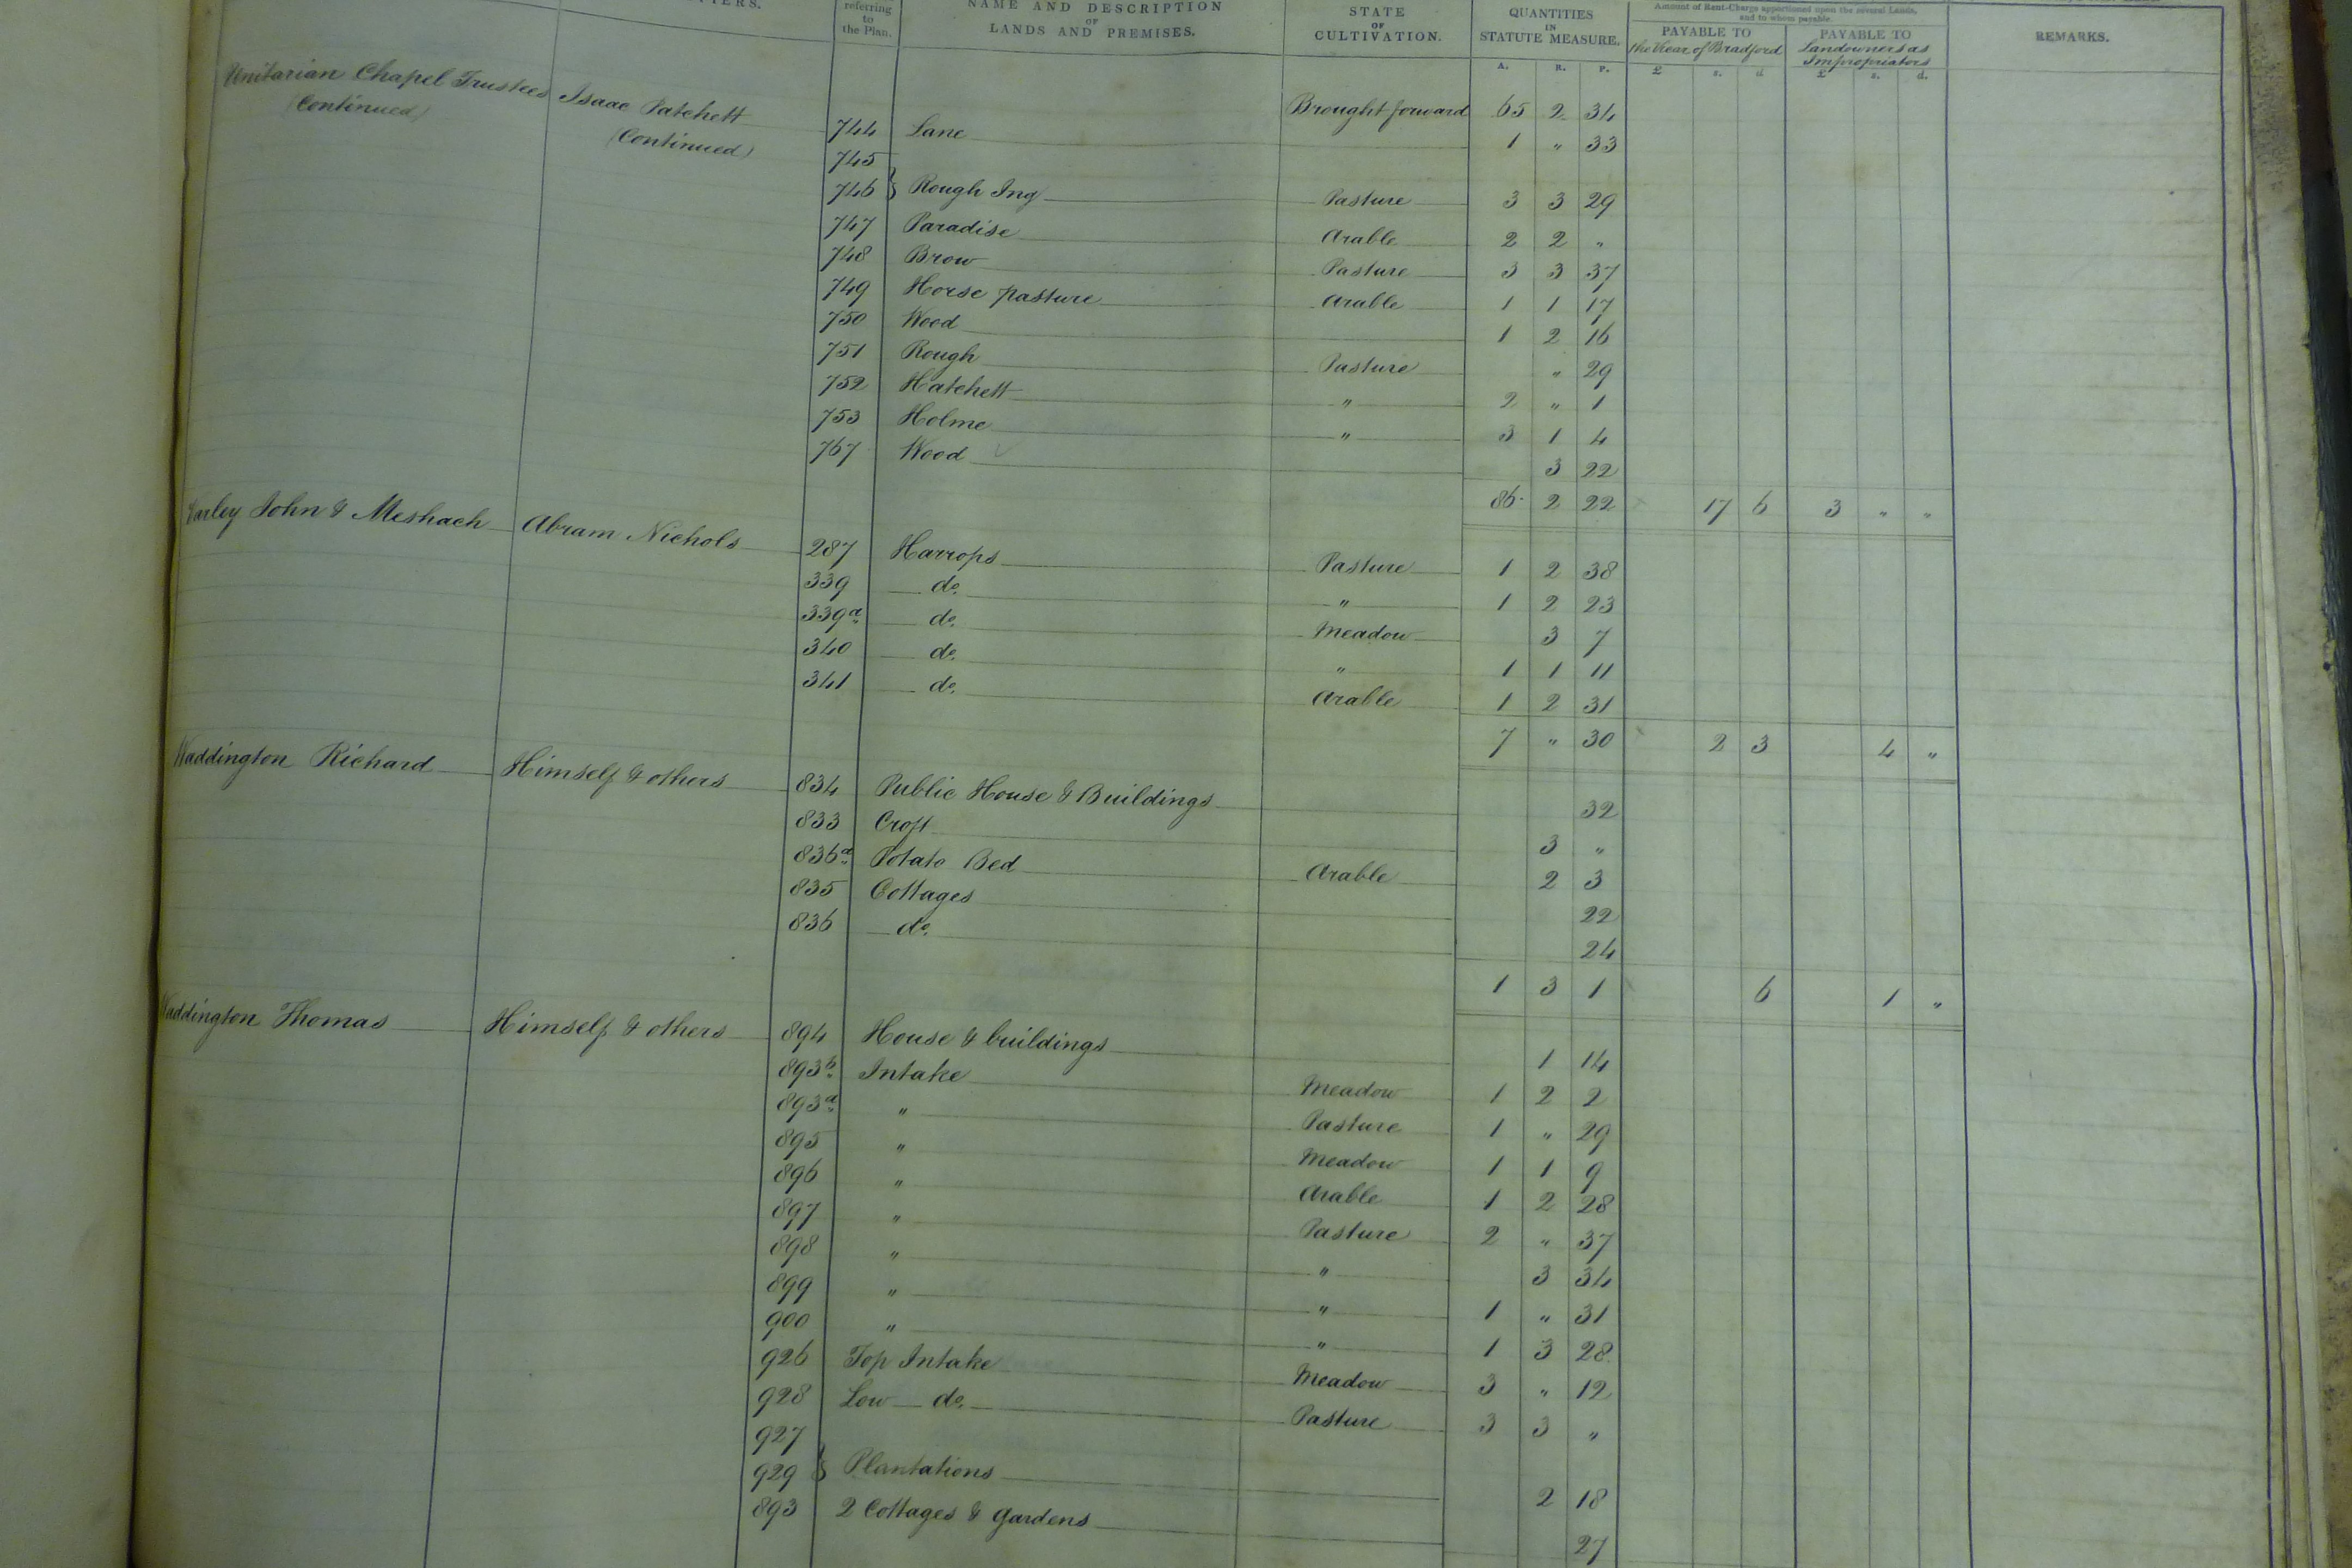 referring to the Plan.
NAME AND DESCRIPTION OF LANDS AND PREMISES.
STATE OF CULTIVATION.
QUANTITIES IN STATUTE MEASURE.
Amount of Rent-Charge apportioned upon the several Lands, and to whom payable.
PAYABLE TO the Vicar of Bradford
PAYABLE TO Landowners as Impropriators
REMARKS.
A. R. P. £ s. d £ s. d.
Unitarian Chapel Trustees Isaac Patchett Brought forward 65 2 34
(Continued) (Continued) 744 Lane 1 " 33
745
746 } Rough Ing Pasture 3 3 29
747 Paradise Arable 2 2 "
748 Brow Pasture 3 3 37
749 Horse pasture Arable 1 1 17
750 Wood 1 2 16
751 Rough Pasture " 29
752 Hatchett " 2 " 1
753 Holme " 3 1 4
767 Wood 3 22
86 2 22 17 6 3 " "
Varley John & Meshach Abram Nichols 287 Harrops Pasture 1 2 38
339 do. " 1 2 23
339a. do. Meadow 3 7
340 do. " 1 1 11
341 do. Arable 1 2 31
7 " 30 2 3 4 "
Waddington Richard Himself & others 834 Public House & Buildings 32
833 Croft 3 "
836a. Potato Bed Arable 2 3
835 Cottages 22
836 do. 24
1 3 1 6 1 "
Waddington Thomas Himself & others 894 House & buildings 1 14
893b. Intake Meadow 1 2 2
893a. " Pasture 1 " 29
895 " Meadow 1 1 9
896 " Arable 1 2 28
897 " Pasture 2 " 37
898 " " 3 34
899 " " 1 " 31
900 " " 1 3 28
926 Top Intake Meadow 3 " 12
928 Low do. Pasture 3 3 "
927
929 } Plantations 2 18
893 2 Cottages & gardens 27